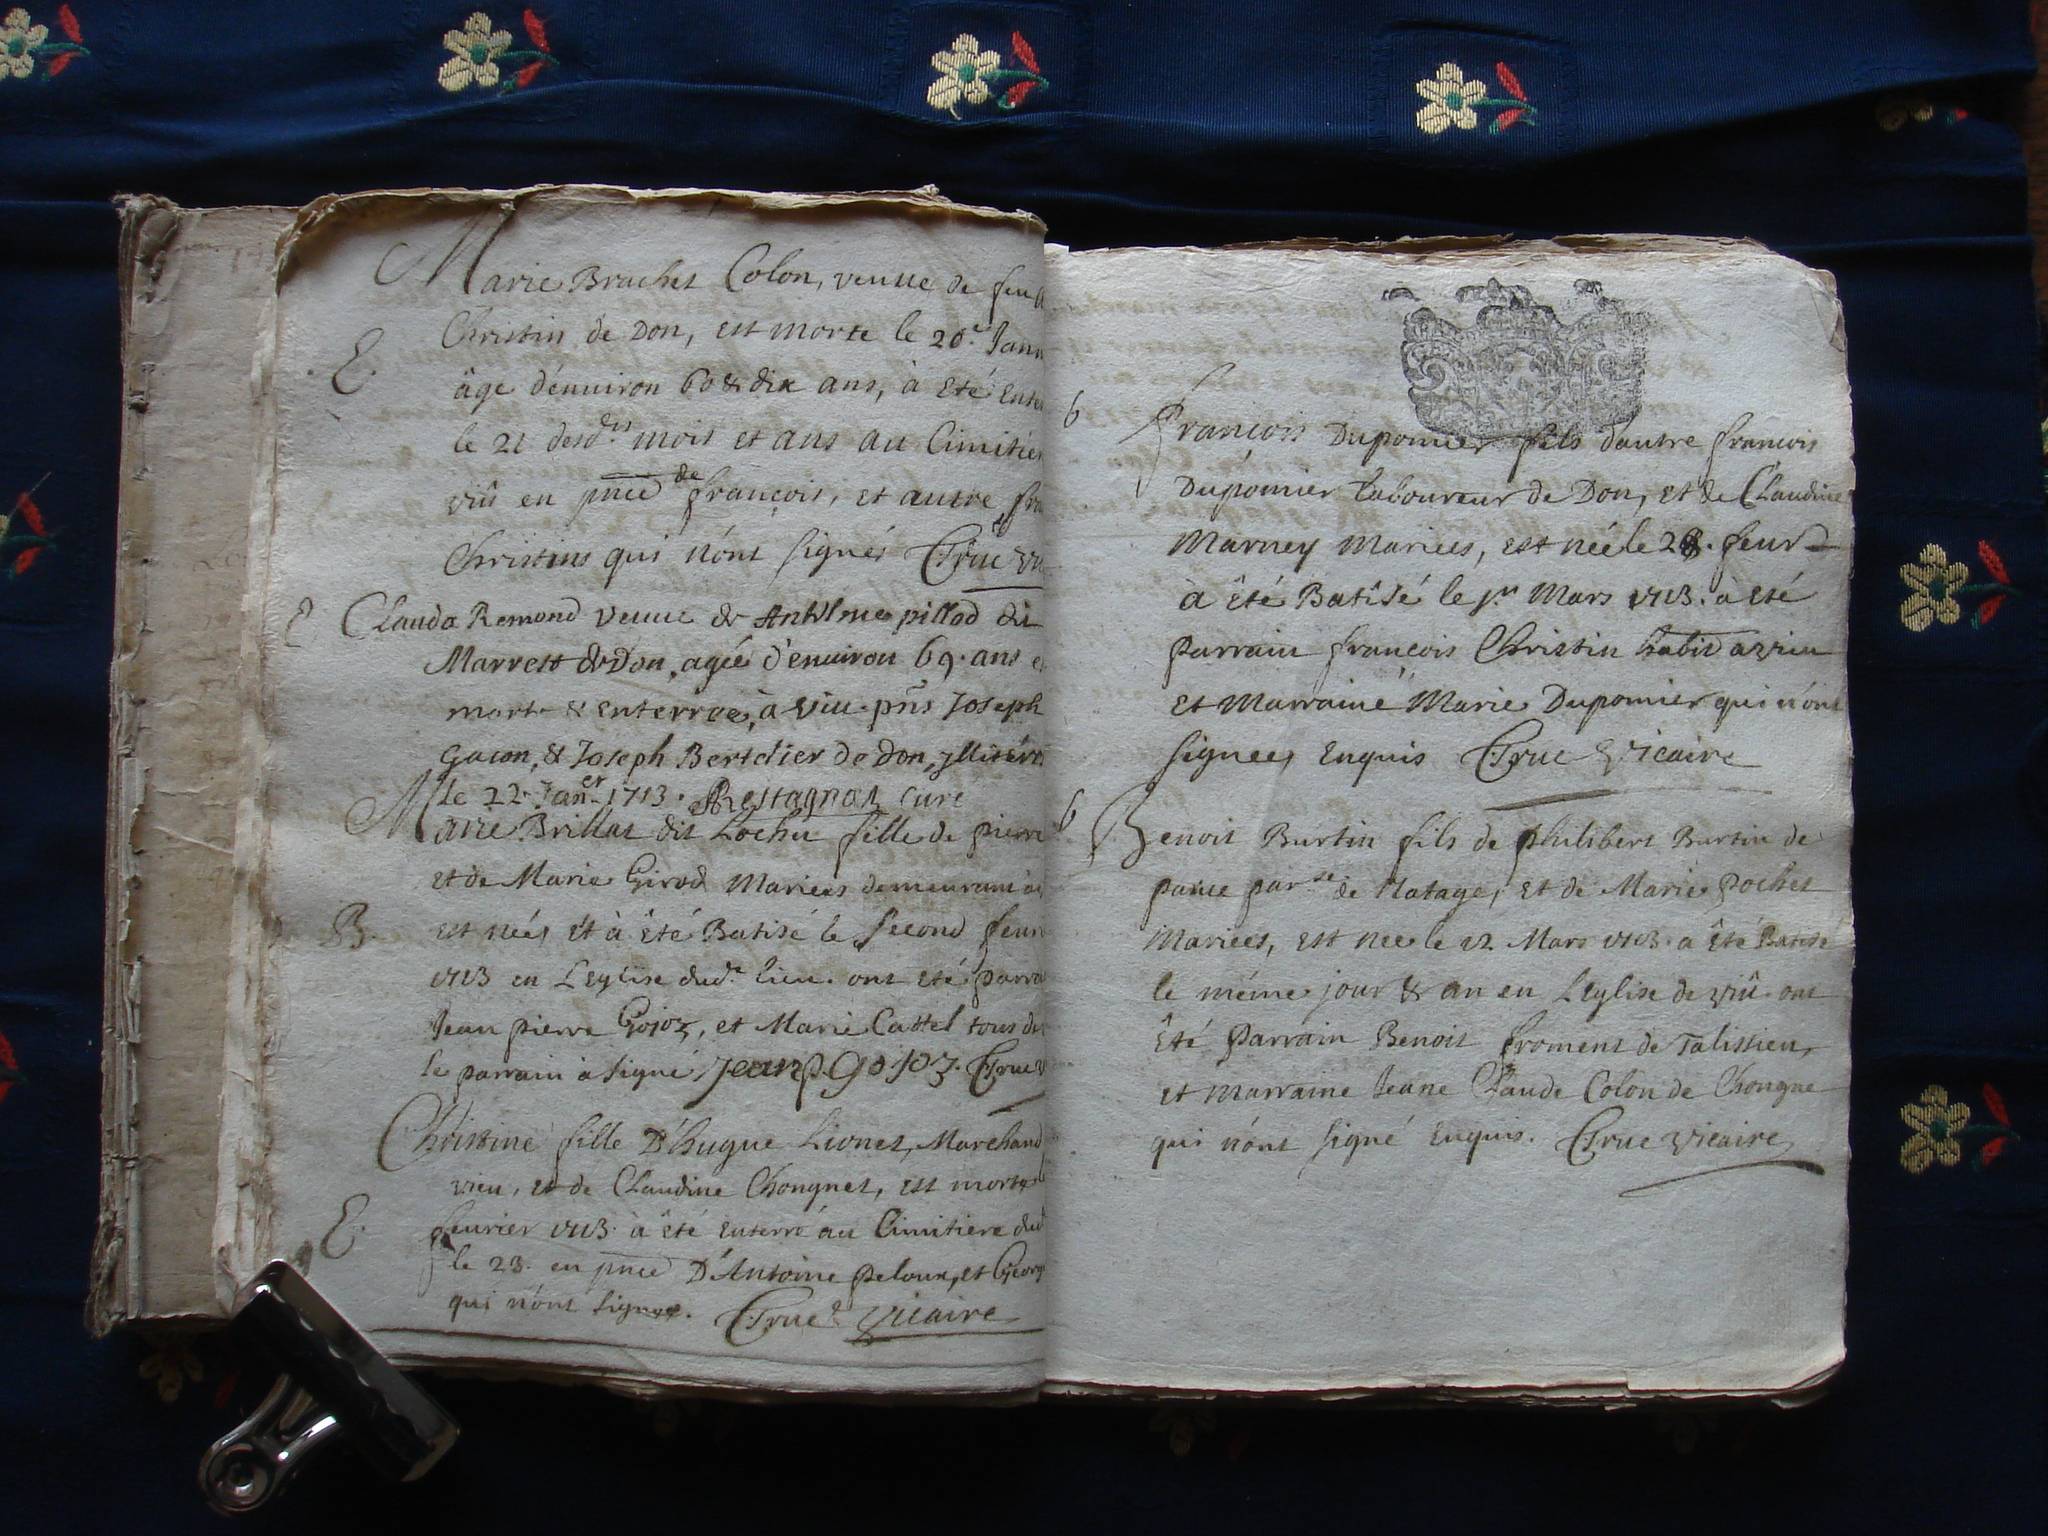 Marie Brachet Colon, veuue de feu
Christin de Don, est morte le 20.e Janu
E.
âge d'énuiron 60 & dix ans, à êté Ente
le 21 desd.ts mois et ans au Cimitie
viû en pnce de françois, et autre fra
Christins qui n'ont signés CTruc vi
E. Clauda Remond veuue de Anthlme pillod dit
Marrest de Don, agée d'enuiron 69. ans e
morte & enterrae, à viu. pñs Joseph
Gacon, & Joseph Bertdier de Don, yllitéré
le 22 Janer 1713. Restagnoz curé
Marie Brillat dit Lochu fille de pierre
et de Marie Girod Mariées demeurant a
B. est néés êt à êté Batisé le second feur
1713 en L'Eglise dud.t lieu. ont eté parra
Jean pierre Gojoz, et Marie Cattel tous du
le parrain a signé, Jean p. Gojoz. CTruc v
Christine fille D'hugue Lionet, Marchand
vieu, et de Claudine Chongnet, est morte l
E. feurier 1713. à êté Enterré au Cimitiere dud
le 23. en pnce D'Antoine peloux, et Georg
qui n'ont signée. CTruc Vicaire
b François Duponier fils d'autre françois
Duponier Laboureur de Don, et de Claudine
Marney Mariées, est néé le 28. feur
à êté Batisé le 1.er Mars 1713. à eté
parrain françois Christin habit a vieu
et Marraine Marie Duponier qui n'ont
signées Enquis CTruc Vicaire
b Benoit Burtin fils de philibert Burtin de
parue par.se de Natage, et de Marie pochet
Mariées, est née le 12 Mars 1713. a êté Batisé
le même jour & an en L'Eglise de viû. ont
êté parrain Benoit froment de Talissieu,
et Marraine Jeane Claude Colon de Chongne
qui n'ont signé Enquis. CTruc Vicaire